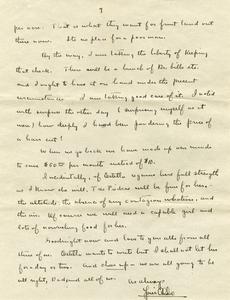 7
per acre. That is what they want for fruit land out
there now. It's no place for a poor man.
By the way, I am taking the liberty of keeping
that check. There will be a bunch of Dr. bills etc.
and I ought to have it on hand under the present
circumstances. I am taking good care of it. I noted
with surprise the other day (surprising myself as it
were) how deeply I have been pondering the price of
a hair cut!
When we go back we have made up our minds
to save $50 per month instead of
Incidentally, if Estella regains her full strength
as I know she will, The Padres will be fine for her.
the altitude, the absence of any contagious
and the air. Of course we will need a capable girl and
lots of nourishing food for her.
Goodnight now and love to you all from all
three of us. Estella wants to write but I shall not let her
for a day or two. And cheer up - we are all going to be
all right, Dad and all of us.
As always,